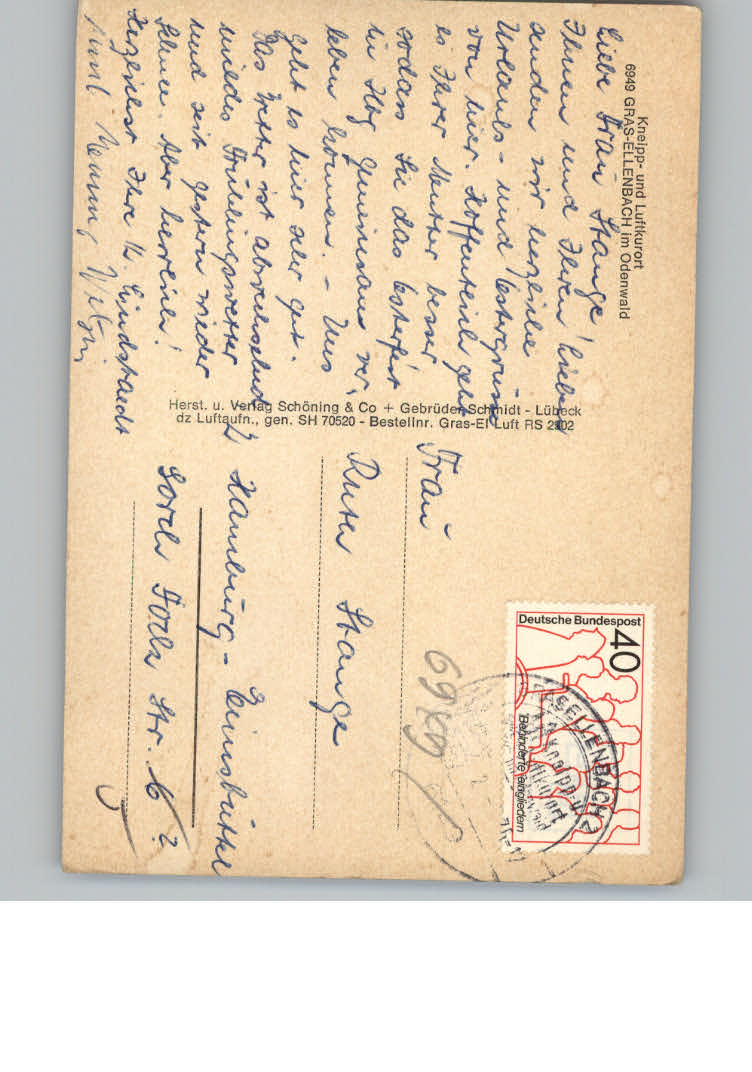 Kneipp- und Luftkurort
6949 GRAS-ELLENBACH im Odenwald
Liebe Frau Stange!
Ihnen und Ihren Lieben
senden wir herzliche
Urlaubs- und Ostergrüsse
von hier. Hoffentlich geht
es Ihrer Mutter besser
sodass Sie das Osterfest
in Hbg gemeinsam ver-
leben können. - Uns
geht es hier sehr gut.
Das Wetter ist abwechselnd
mildes Frühlingswetter
und seit gestern wieder
Schnee. Aber herrlich!
Herzlichst Ihre H. Lindstaedt
und Henning
Herst. u. Verlag Schöning & Co + Gebrüder Schmidt - Lübeck
dz Luftaufn., gen. SH 70520 - Bestellnr. Gras-El Luft RS 2902
Deutsche Bundespost
40
Behinderte eingliedern
ELLENBACH
Kneipp-u.
Frau
Ruth Stange
2 Hamburg - Eimsbüttel
Gorch Fock Str. 16
?